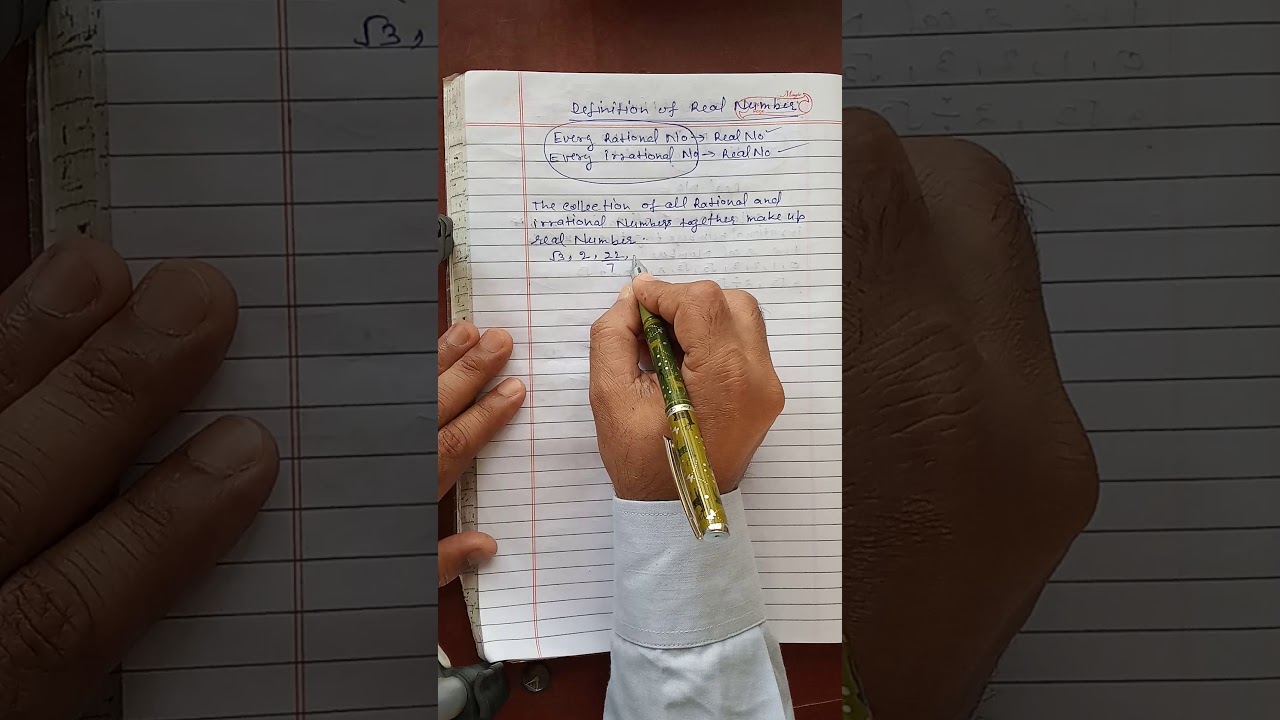 Definition of Real Number
Every Rational No → Real No
Every irrational No → Real No
The collection of all Rational and
irrational Numbers together make up
real Number.
√3, 2, 22/7,
√3,